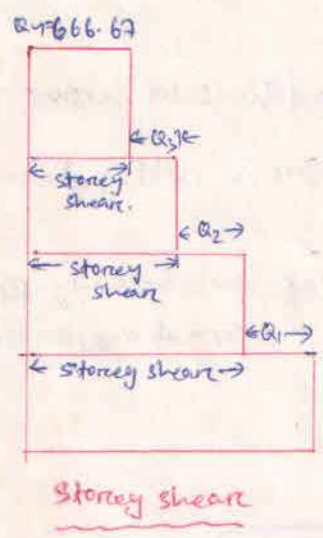 Q4=666.67
←Q3→
← →
storey
shear.
← Q2 →
← storey →
shear
←Q1→
← storey shear →
Storey shear